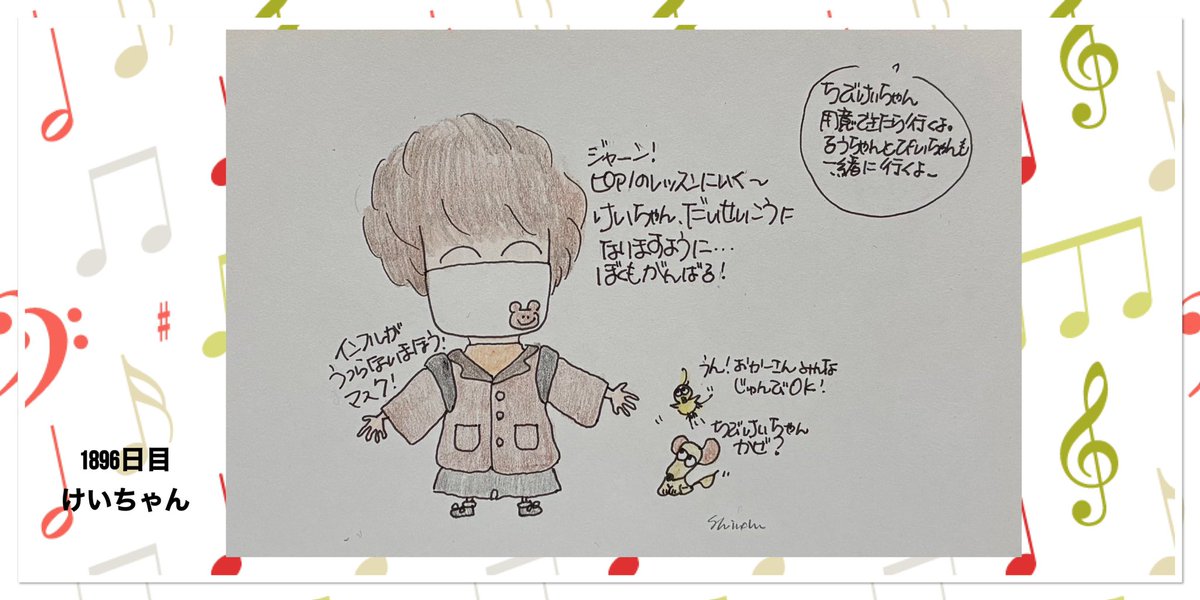 ちびけいちゃん
用意できたら行くよ。
るうちゃんとぴいちゃんも
一緒に行くよ〜
ジャーン！
ピアノのレッスンにいく〜
けいちゃん、だいせいこうに
なりますように…
ぼくもがんばる！
インフルが
うつらないまほう！
マスク！
うん！おかーさんみんな
じゅんびOK！
ちびけいちゃん
かぜ？
1896日目
けいちゃん